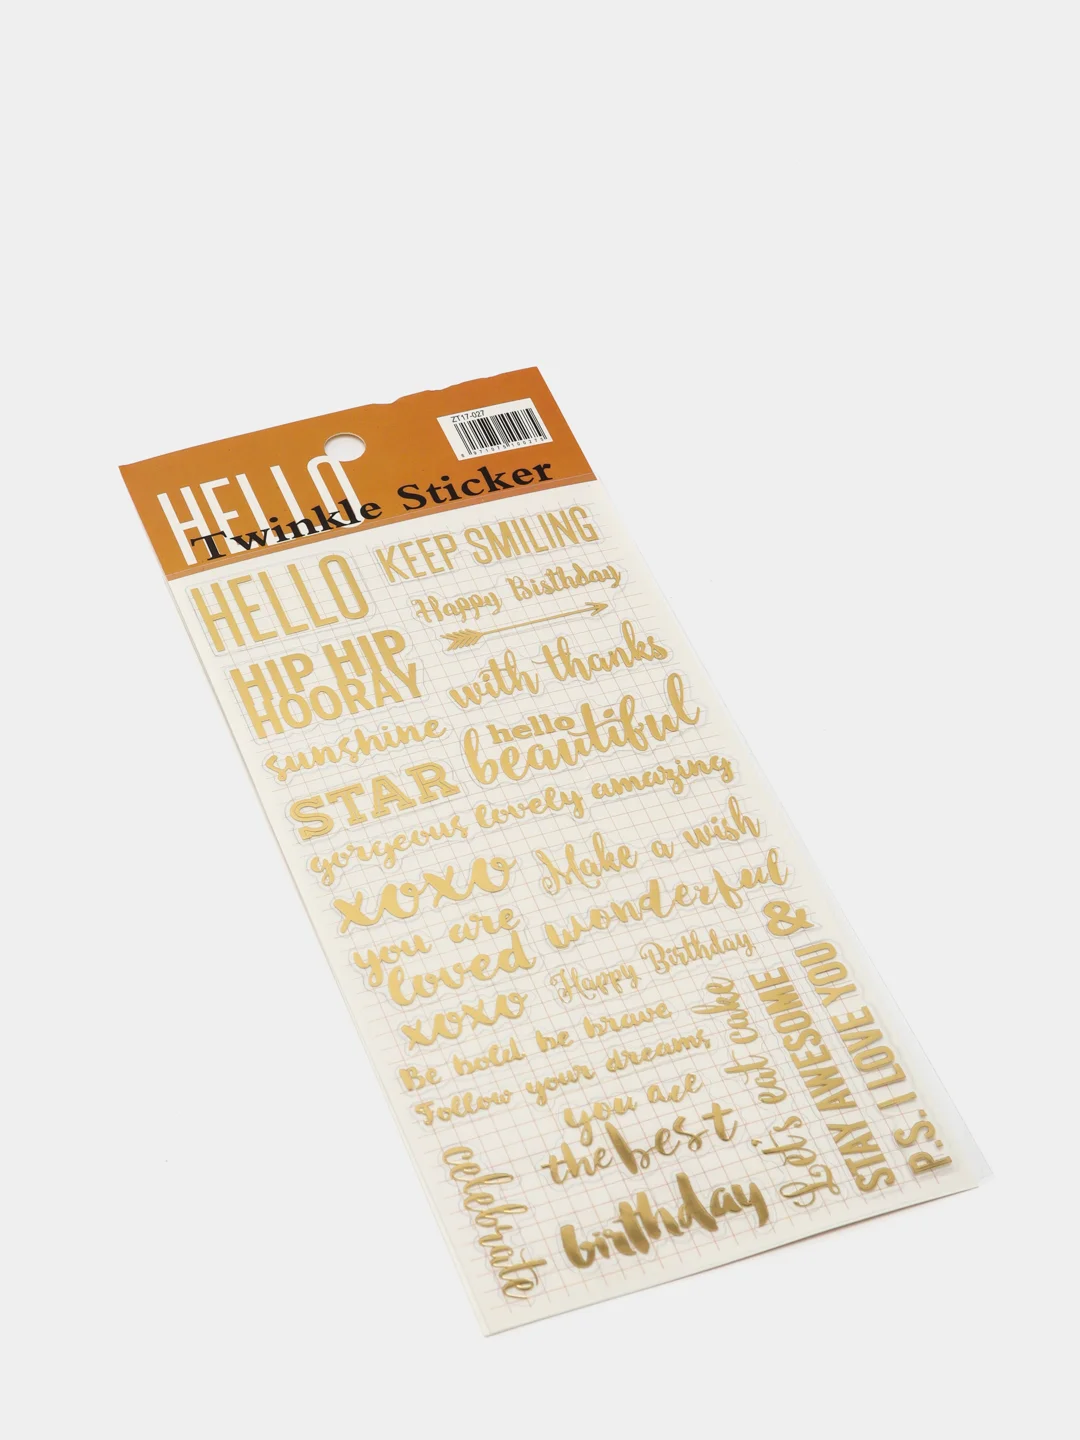 ZT17-027
HELLO
Twinkle Sticker
HELLO
KEEP SMILING
Happy Birthday
HIP HIP
HOORAY
with thanks
sunshine
hello
beautiful
STAR
gorgeous lovely amazing
xoxo
Make a wish
you are
loved
wonderful
&
xoxo
Happy Birthday
Be bold be brave
Follow your dreams
you are
the best
Let's eat cake
STAY AWESOME
P.S. I LOVE YOU
celebrate
birthday